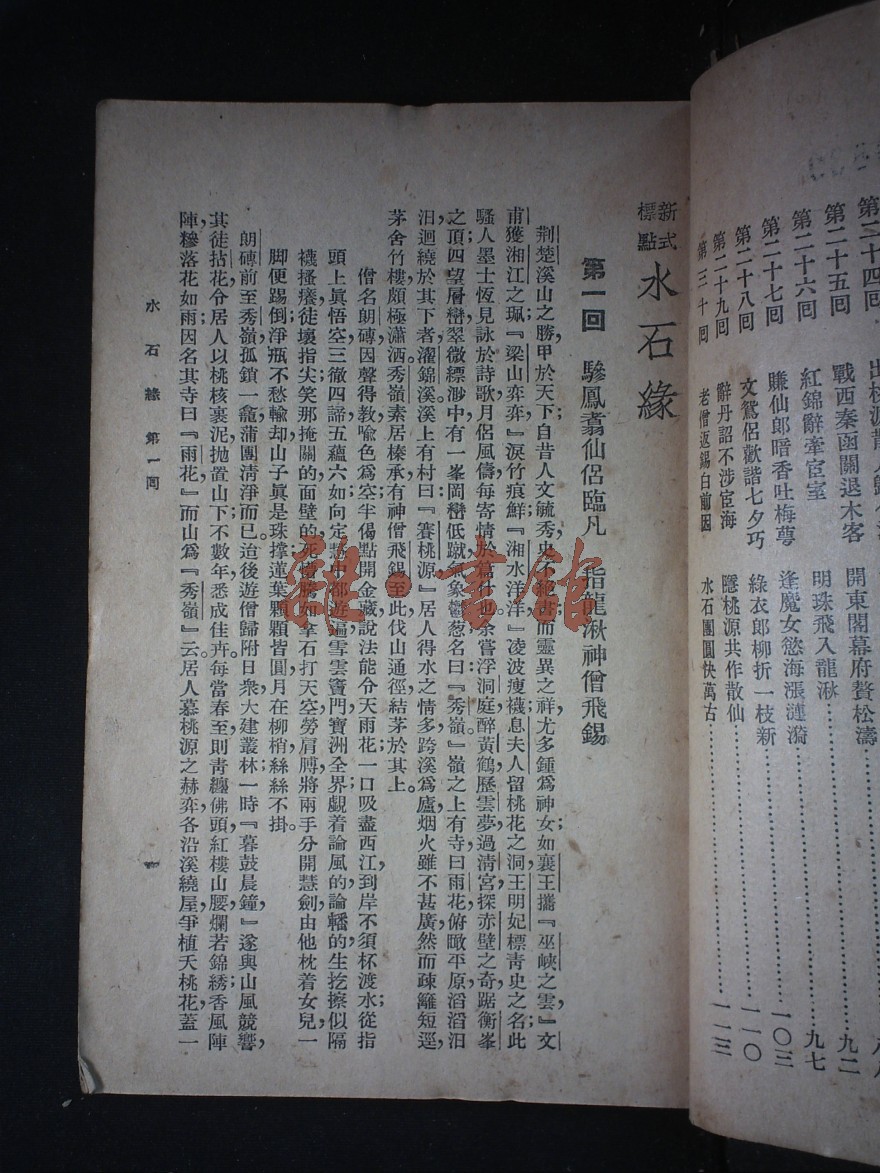 第二十四回
第二十五回 戰西秦函關退木客 開東閣幕府贅松濤……九二
第二十六回 紅錦辭牽宦室 明珠飛入龍湫……九七
第二十七回 賺仙郎暗香吐梅蕚 逢魔女慾海漲漣漪……一〇三
第二十八回 文鴛侶歡諧七夕巧 綠衣郎柳折一枝新……一一〇
第二十九回 辭丹詔不涉宦海 隱桃源共作散仙
第三十回 老僧返錫白前因 水石團圓快萬古……一一三
新式標點 水石緣
第一回 驂鳳翥仙侶臨凡 指龍湫神僧飛錫
荆楚溪山之勝，甲於天下；自昔人文毓秀，史不絕書；而靈異之祥，尤多鍾爲神女；如襄王攜『巫峽之雲』，文
甫獲湘江之珮；『梁山弈弈，』淚竹痕鮮；『湘水洋洋，』凌波瘦襪；息夫人留桃花之洞；王明妃標青史之名；此
騷人墨士，恆見詠於詩歌；月侶風儔，每寄情於篇什也。余嘗浮洞庭，醉黃鶴，歷雲夢，過清宮，探赤壁之奇，踞衡峯
之頂；四望層巒翠微縹渺中，有一峯岡巒低蹴，氣象鬱葱，名曰：『秀嶺。』嶺之上有寺曰雨花；俯瞰平原，滔滔汩
汩，迴繞於其下者，濯錦溪。溪上有村曰：『賽桃源。』居人得水之情，多跨溪爲廬，烟火雖不甚廣，然而疎籬短逕，
茅舍竹樓，頗極瀟洒。秀嶺素居榛承，有神僧飛錫至此，伐山通徑，結茅於其上。
僧名朗磚，因聲得教，喻色爲空；半偈點開金藏，說法能令天雨花；一口吸盡西江，到岸不須杯渡水；從指
頭上眞悟空三徹四諦五蘊六如，向定慧中都遊遍雪雲竇門寶洲全界；覷着論風的論轓的生扢擦似隔
襪搔癢，徒壞指尖；笑那掩關的面壁的死懵騰如拿石打天，空勞肩膊；將兩手分開慧劍，由他枕着女兒；一
脚便踢倒淨瓶，不愁輸却山子；眞是珠撑蓮葉顆顆皆圓，月在柳梢絲絲不掛。
朗磚前至秀嶺，孤鎖一龕，蒲團清淨而已。迨後遊僧歸附日衆，大建叢林；一時『暮鼓晨鐘』，遂與山風競響，
其徒拈花，令居人以桃核裹泥，拋置山下，不數年，悉成佳卉。每當春至，則青纏佛頭，紅樓山腰，爛若錦綉；香風陣
陣，糝落花如雨，因名其寺曰『雨花』，而山爲『秀嶺』云。居人慕桃源之赫弈，各沿溪繞屋，爭植夭桃花，蓋一
水石緣 第一回
一
雜·書館